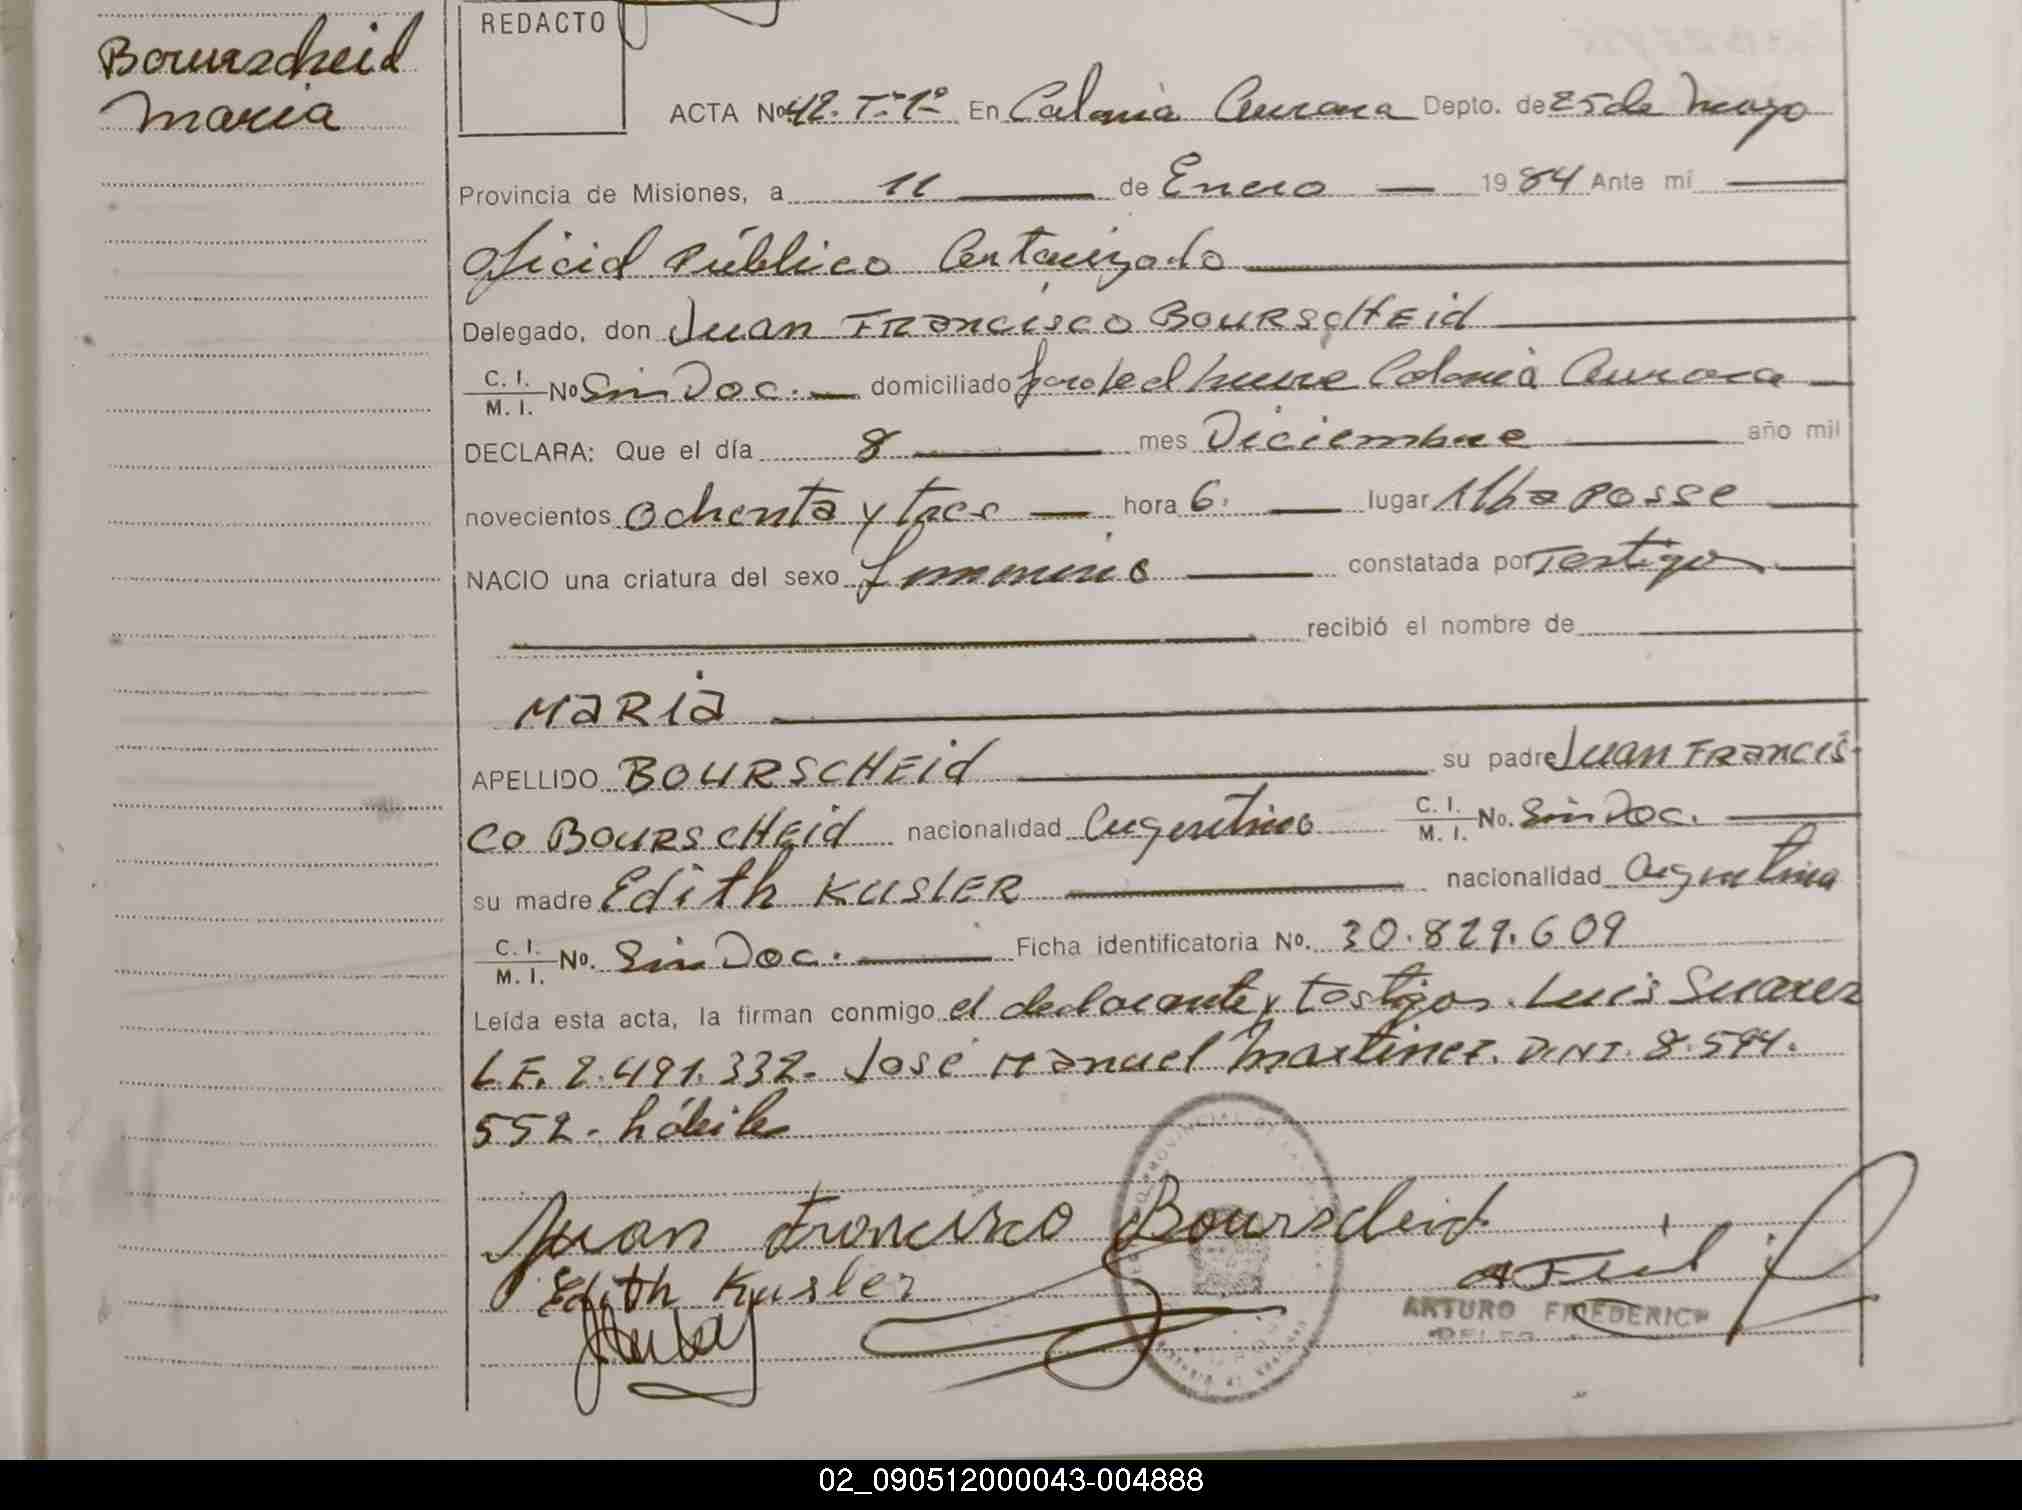 Bourscheid
Maria
REDACTO
ACTA Nº 42. Tº 1º En Colonia Aurora Depto. de 25 de Mayo
Provincia de Misiones, a 11 de Enero 1984 Ante mí
Oficial Público Autorizado
Delegado, don Juan Francisco BOURSCHEID
C. I. / M. I. Nº Sin Doc. domiciliado Colonia Aurora
DECLARA: Que el día 8 mes Diciembre año mil
novecientos ochenta y tres hora 6. lugar Alba Posse
NACIO una criatura del sexo femenino constatada por Testigos
recibió el nombre de
MARIA
APELLIDO BOURSCHEID su padre Juan Francis
co BOURSCHEID nacionalidad Argentino C. I. / M. I. No. Sin Doc.
su madre Edith KUSLER nacionalidad Argentina
C. I. / M. I. No. Sin Doc. Ficha identificatoria No. 30.829.609
Leída esta acta, la firman conmigo el declarante y testigos. Luis Suarez
L.E. 2.491.332. José Manuel Martinez. D.N.I. 8.594.
552. hábiles
Juan Francisco Bourscheid
Edith Kusler
ARTURO FRIEDERICH
02_090512000043-004888